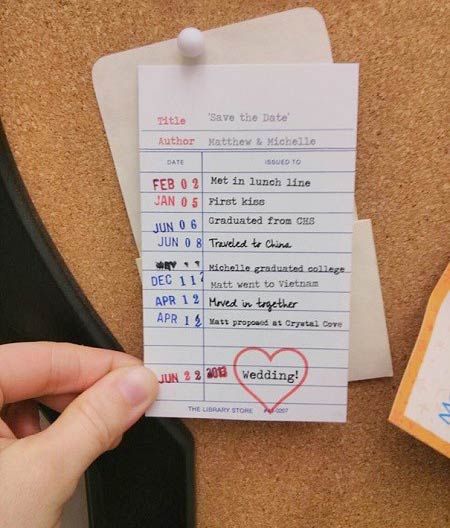 Title 'Save the Date'
Author Matthew & Michelle
DATE ISSUED TO
FEB 02 Met in lunch line
JAN 05 First kiss
JUN 06 Graduated from CHS
JUN 08 Traveled to China
Michelle graduated college
DEC 11 Matt went to Vietnam
APR 12 Moved in together
APR Matt proposed at Crystal Cove
JUN 22 2013 Wedding!
THE LIBRARY STORE #43-0207